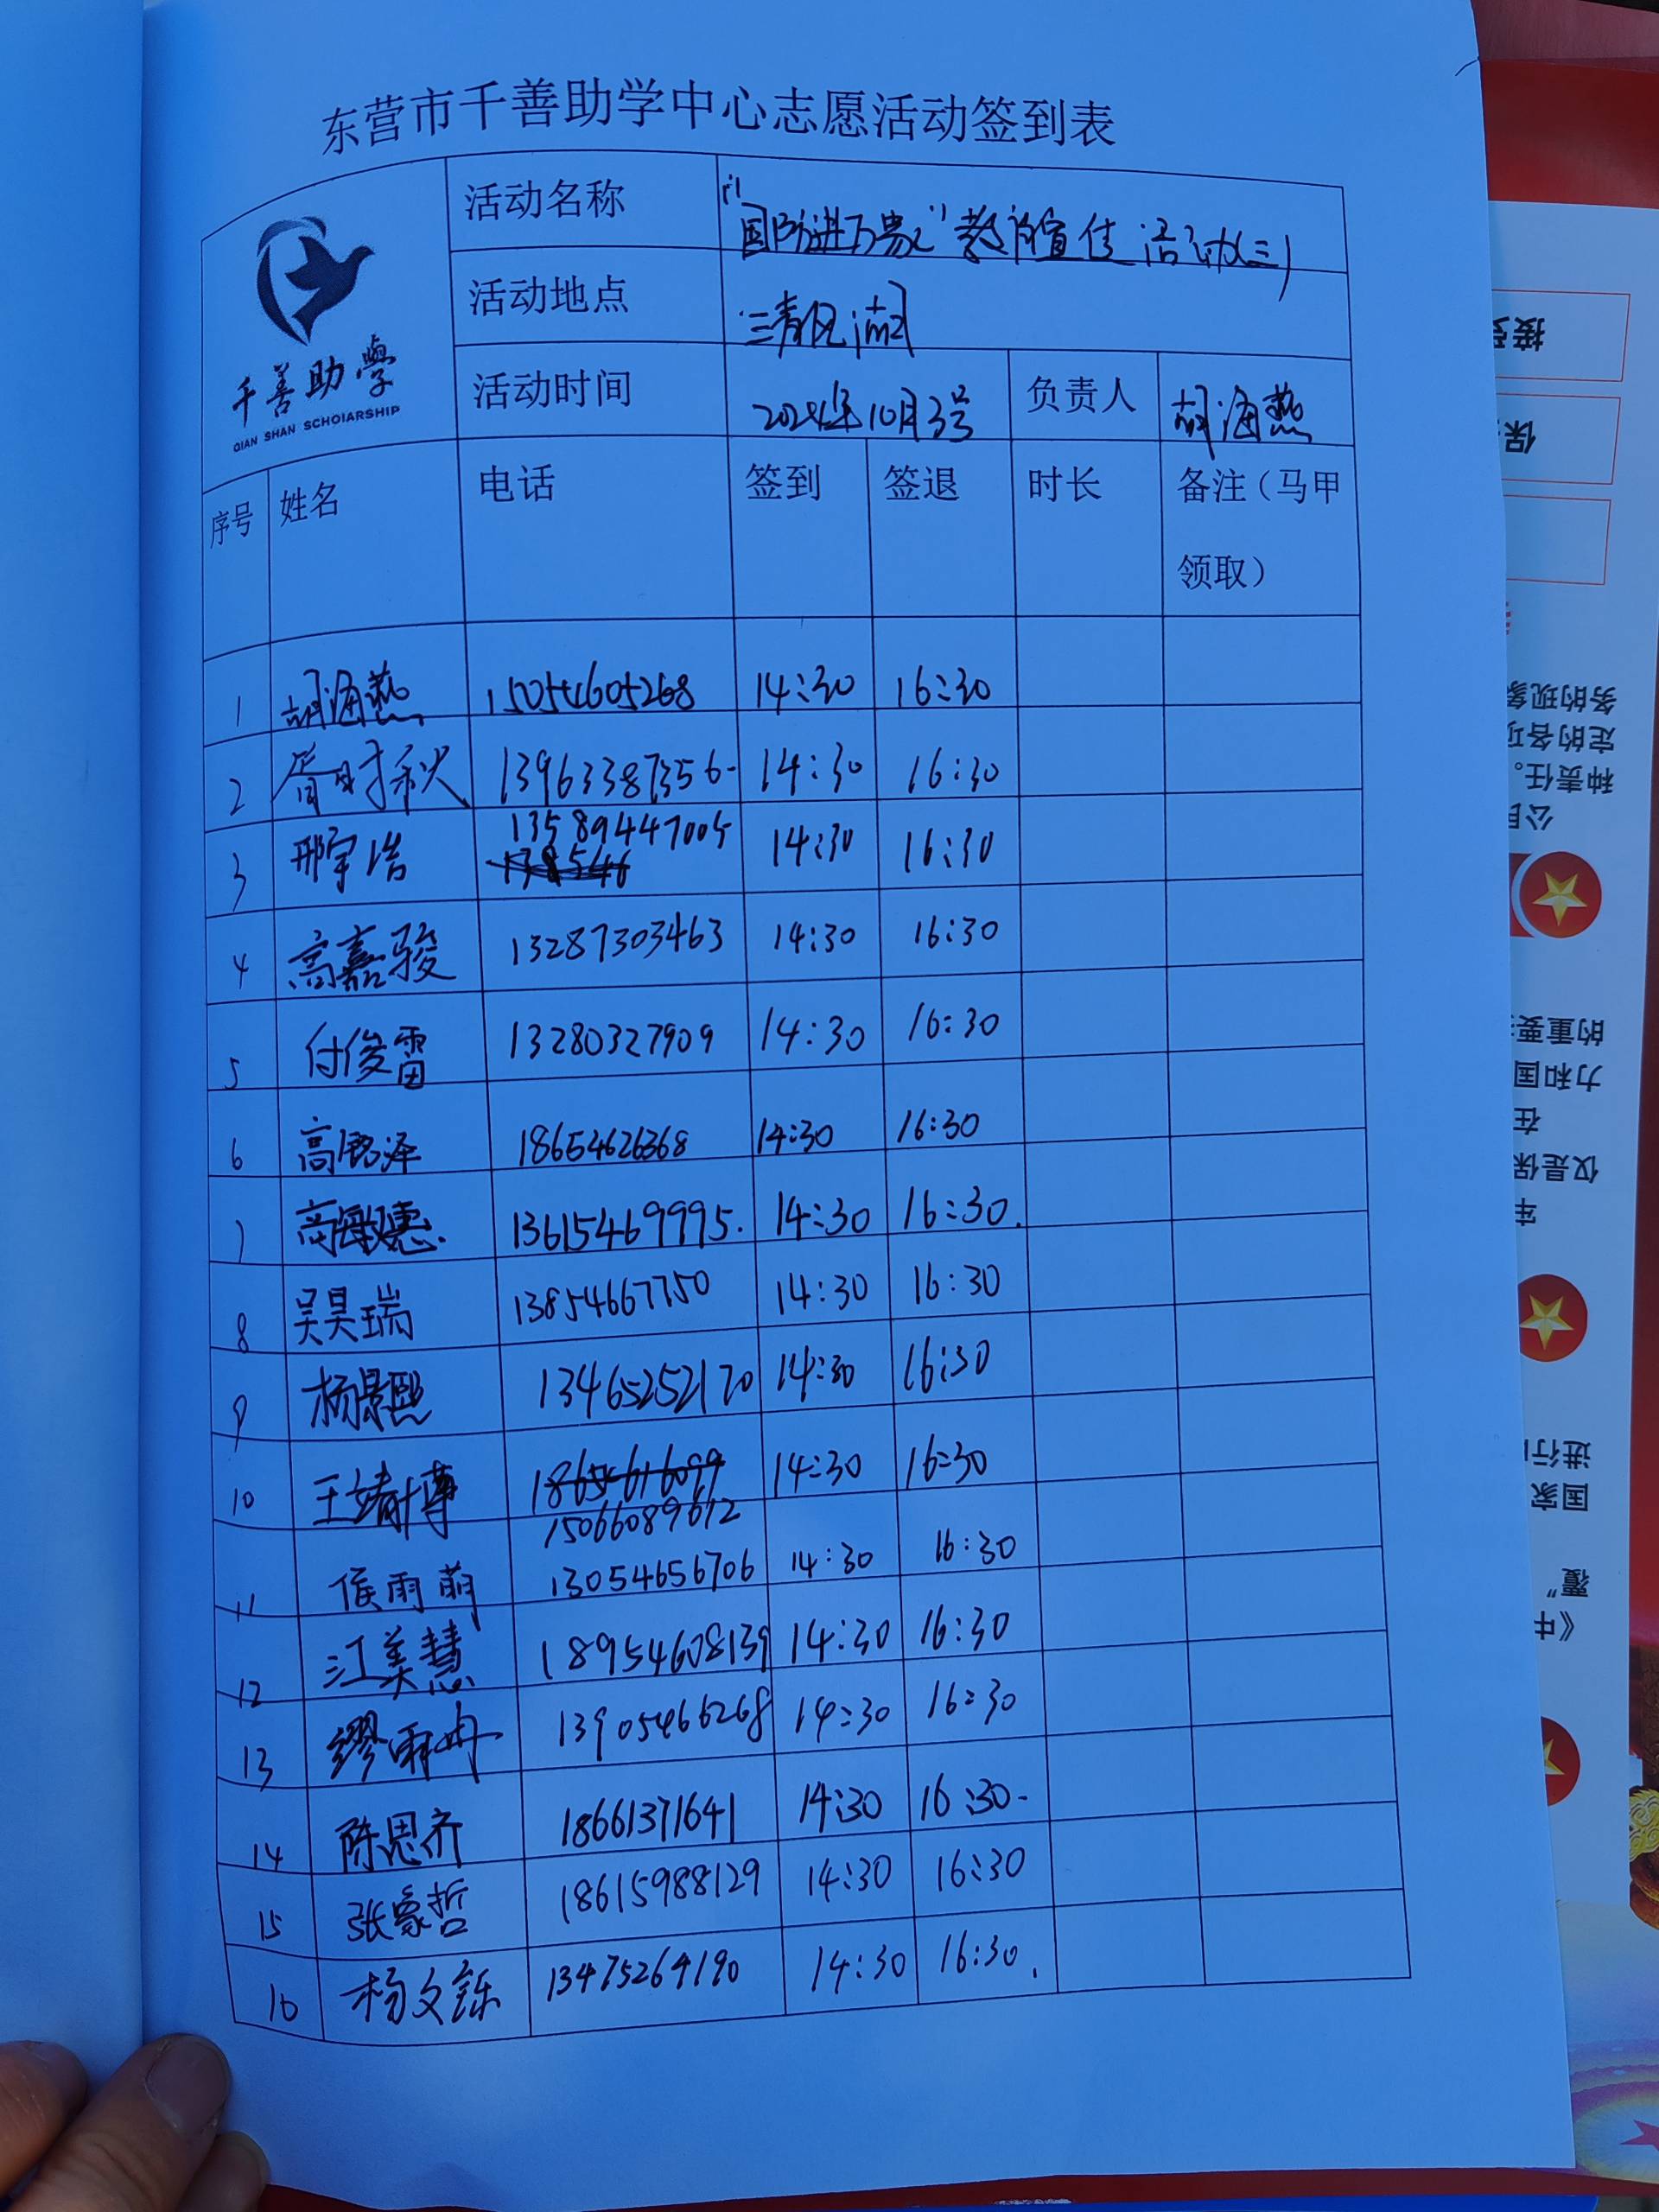 东营市千善助学中心志愿活动签到表
千善助學
QIAN SHAN SCHOlARSHIP
活动名称 "国防进万家"教育宣传活动(三)
活动地点 三青风
活动时间 2024年10月3号 负责人 胡海燕
序号 姓名 电话 签到 签退 时长 备注(马甲
领取)
1 胡海燕 15054605268 14:30 16:30
2 胥时秋 13963387356 14:30 16:30
3 邢宇浩 13589447005 14:30 16:30
138546
4 高嘉骏 13287303463 14:30 16:30
5 付俊雷 13280327909 14:30 16:30
6 高泽 18654626368 14:30 16:30
7 高敏惠 13615469995. 14:30 16:30.
8 吴昊瑞 13854667750 14:30 16:30
9 杨景熙 13465252170 14:30 16:30
10 王靖博 18654616099 14:30 16:30
15066089612
11 侯雨萌 13054656706 14:30 16:30
12 江美慧 18954608139 14:30 16:30
13 缪雨冉 13905466268 14:30 16:30
14 陈思齐 18661371641 14:30 16:30.
15 张豪哲 18615988129 14:30 16:30
16 杨文铄 13475264190 14:30 16:30.
接受
保
务的现象
定的各项
种责任。
公民
的重要
力和国
在
仅是保
牢
进行
国家
覆"
《中